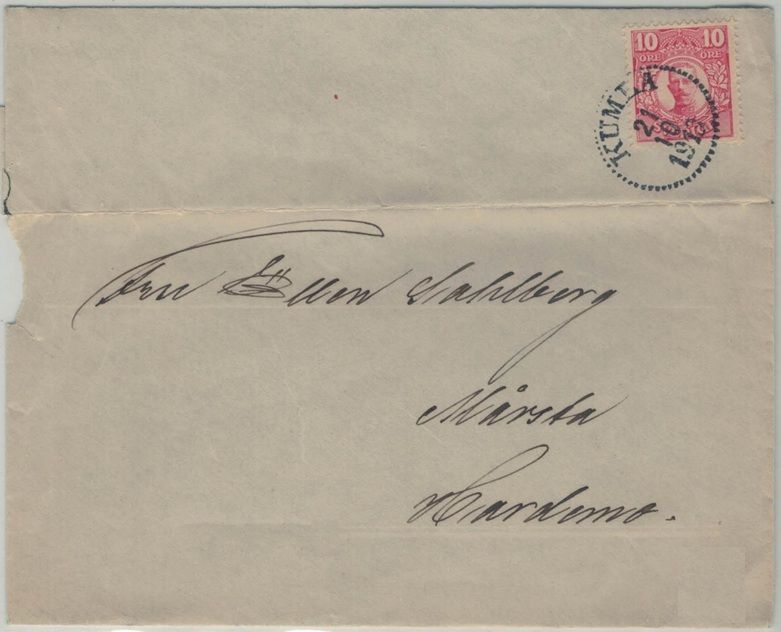 10 10
ÖRE ÖRE
KUMLA
21
10
1913
Fru Ellen Dahlberg
Mårsta
Hardemo.